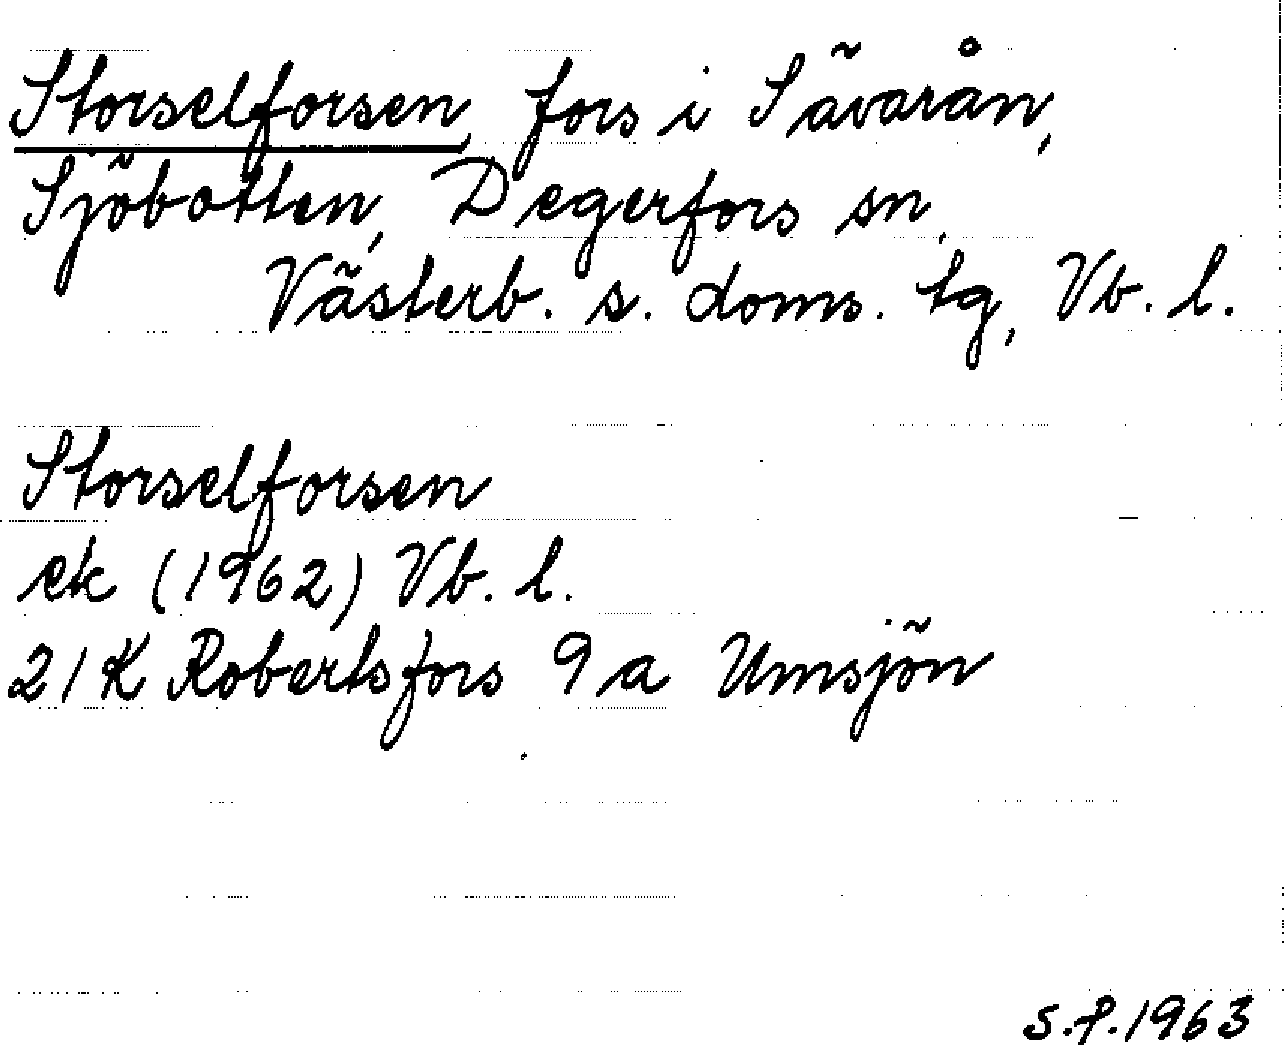 Storselforsen, fors i Sävarån,
Sjöbotten, Degerfors sn,
Västerb. s. doms. tg, Vb. l.
Storselforsen
ek (1962) Vb. l.
21K Robertsfors 9a Umsjön
S.f. 1963